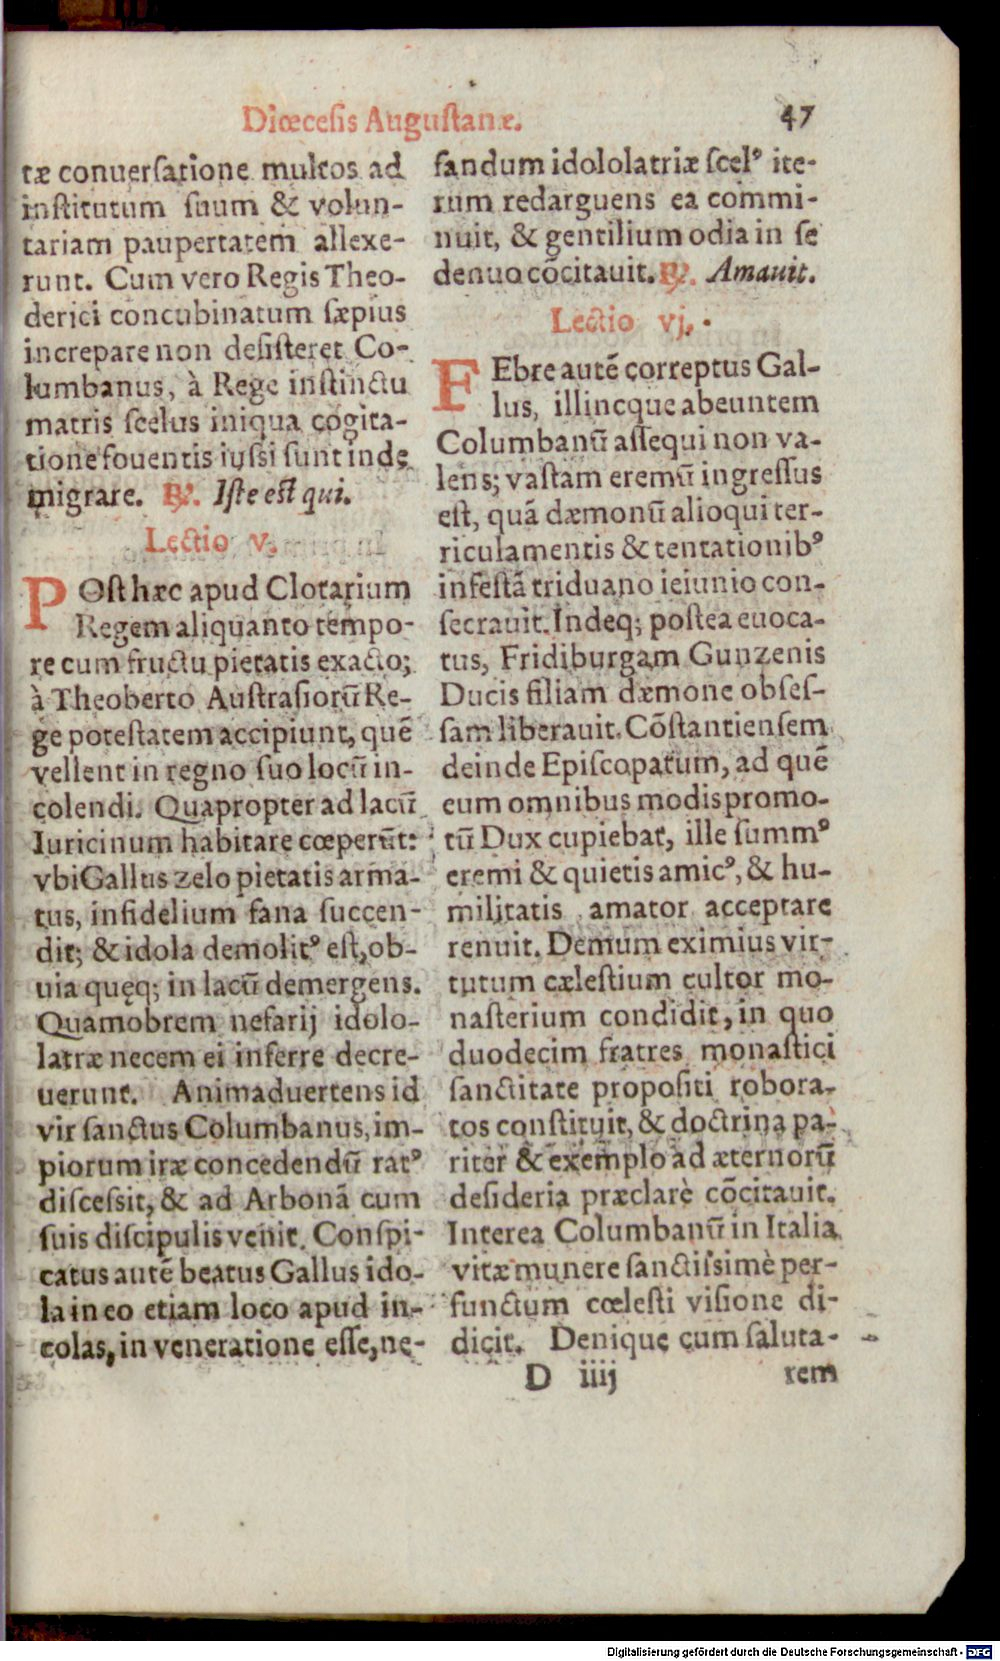 Diœcesis Augustanæ. 47
tæ conuersatione multos ad
institutum suum & volun-
tariam paupertatem allexe-
runt. Cum vero Regis Theo-
derici concubinatum sæpius
increpare non desisteret Co-
lumbanus, à Rege instinctu
matris scelus iniqua cogita-
tione fouentis iussi sunt inde
migrare. ℟. Iste est qui.
Lectio v.
POst hæc apud Clotarium
Regem aliquanto tempo-
re cum fructu pietatis exacto;
à Theoberto Austrasiorū Re-
ge potestatem accipiunt, quē
vellent in regno suo locū in-
colendi. Quapropter ad lacū
Iuricinum habitare cœperūt:
vbi Gallus zelo pietatis arma-
tus, infidelium fana succen-
dit; & idola demolitꝰ est, ob-
uia quęq; in lacū demergens.
Quamobrem nefarij idolo-
latræ necem ei inferre decre-
uerunt. Animaduertens id
vir sanctus Columbanus, im-
piorum iræ concedendū ratꝰ
discessit, & ad Arbonā cum
suis discipulis venit. Conspi-
catus autē beatus Gallus ido-
la in eo etiam loco apud in-
colas, in veneratione esse, ne-
fandum idololatriæ scelꝰ ite-
rum redarguens ea commi-
nuit, & gentilium odia in se
denuo cōcitauit. ℟. Amauit.
Lectio vj.
FEbre autē correptus Gal-
lus, illincque abeuntem
Columbanū assequi non va-
lens; vastam eremū ingressus
est, quā dæmonū alioqui ter-
riculamentis & tentationibꝰ
infestā triduano ieiunio con-
secrauit. Indeq; postea euoca-
tus, Fridiburgam Gunzenis
Ducis filiam dæmone obses-
sam liberauit. Cōstantiensem
deinde Episcopatum, ad quē
eum omnibus modis promo-
tū Dux cupiebat, ille summꝰ
eremi & quietis amicꝰ, & hu-
militatis amator acceptare
renuit. Demum eximius vir-
tutum cælestium cultor mo-
nasterium condidit, in quo
duodecim fratres monastici
sanctitate propositi robora-
tos constituit, & doctrina pa-
riter & exemplo ad æternorū
desideria præclarè cōcitauit.
Interea Columbanū in Italia
vitæ munere sanctissimè per-
functum cœlesti visione di-
dicit. Denique cum saluta-
D iiij rem
Digitalisierung gefördert durch die Deutsche Forschungsgemeinschaft - DFG